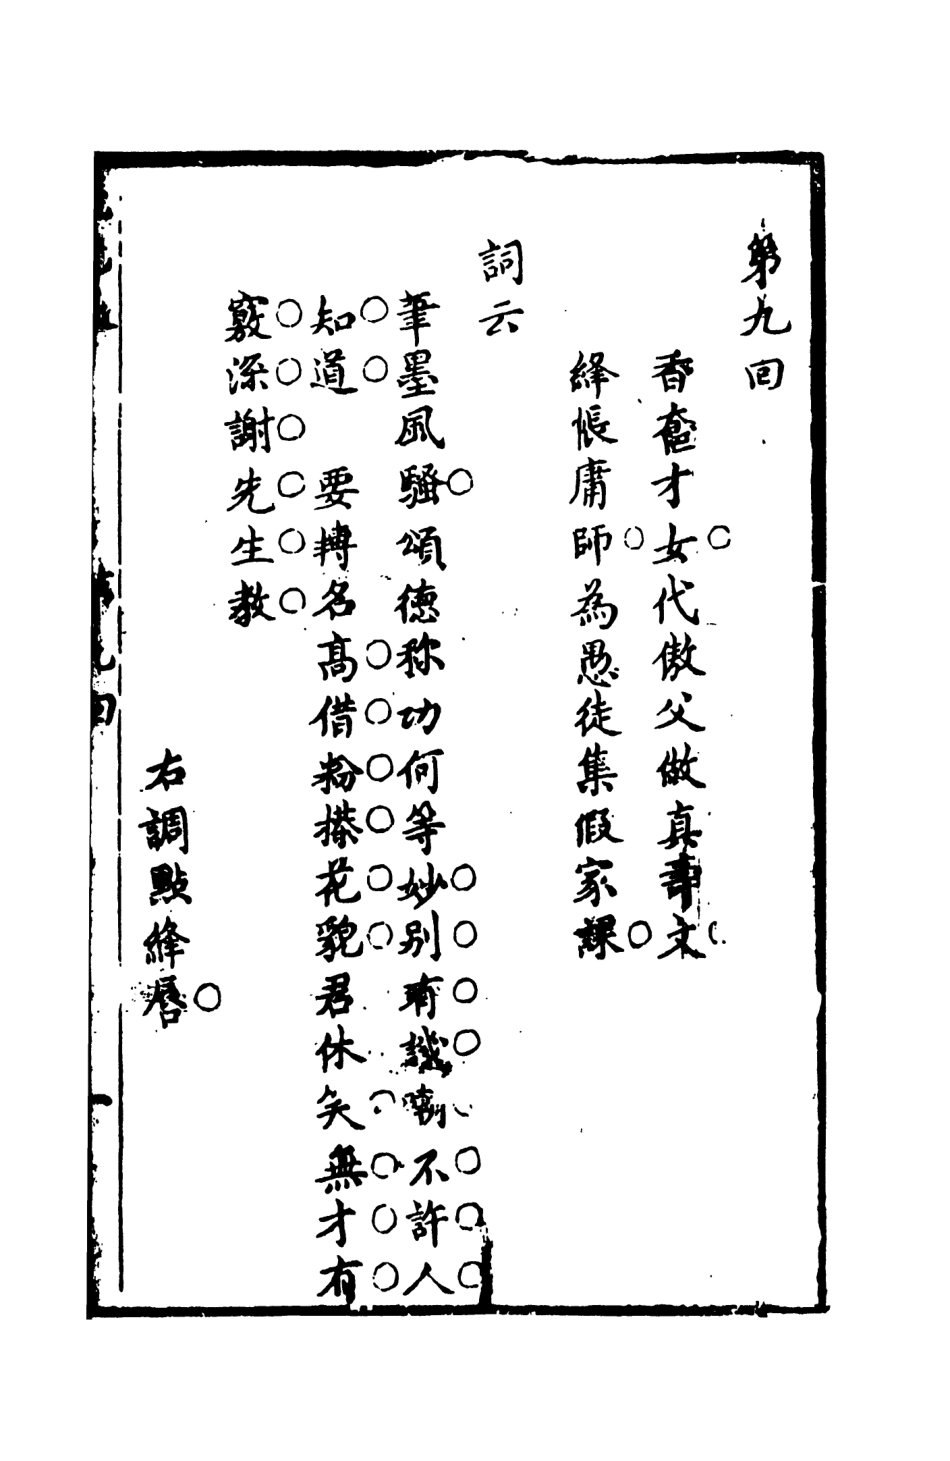 第九回
香奩才女代傲父做真壽文
絳帳庸師為愚徒集假家課
詞云
筆墨風騷頌德称功何等妙別有譏嘲不許人
知道　要轉名高借粉搽花貌君休笑無才有
竅深謝先生教
右調點絳唇